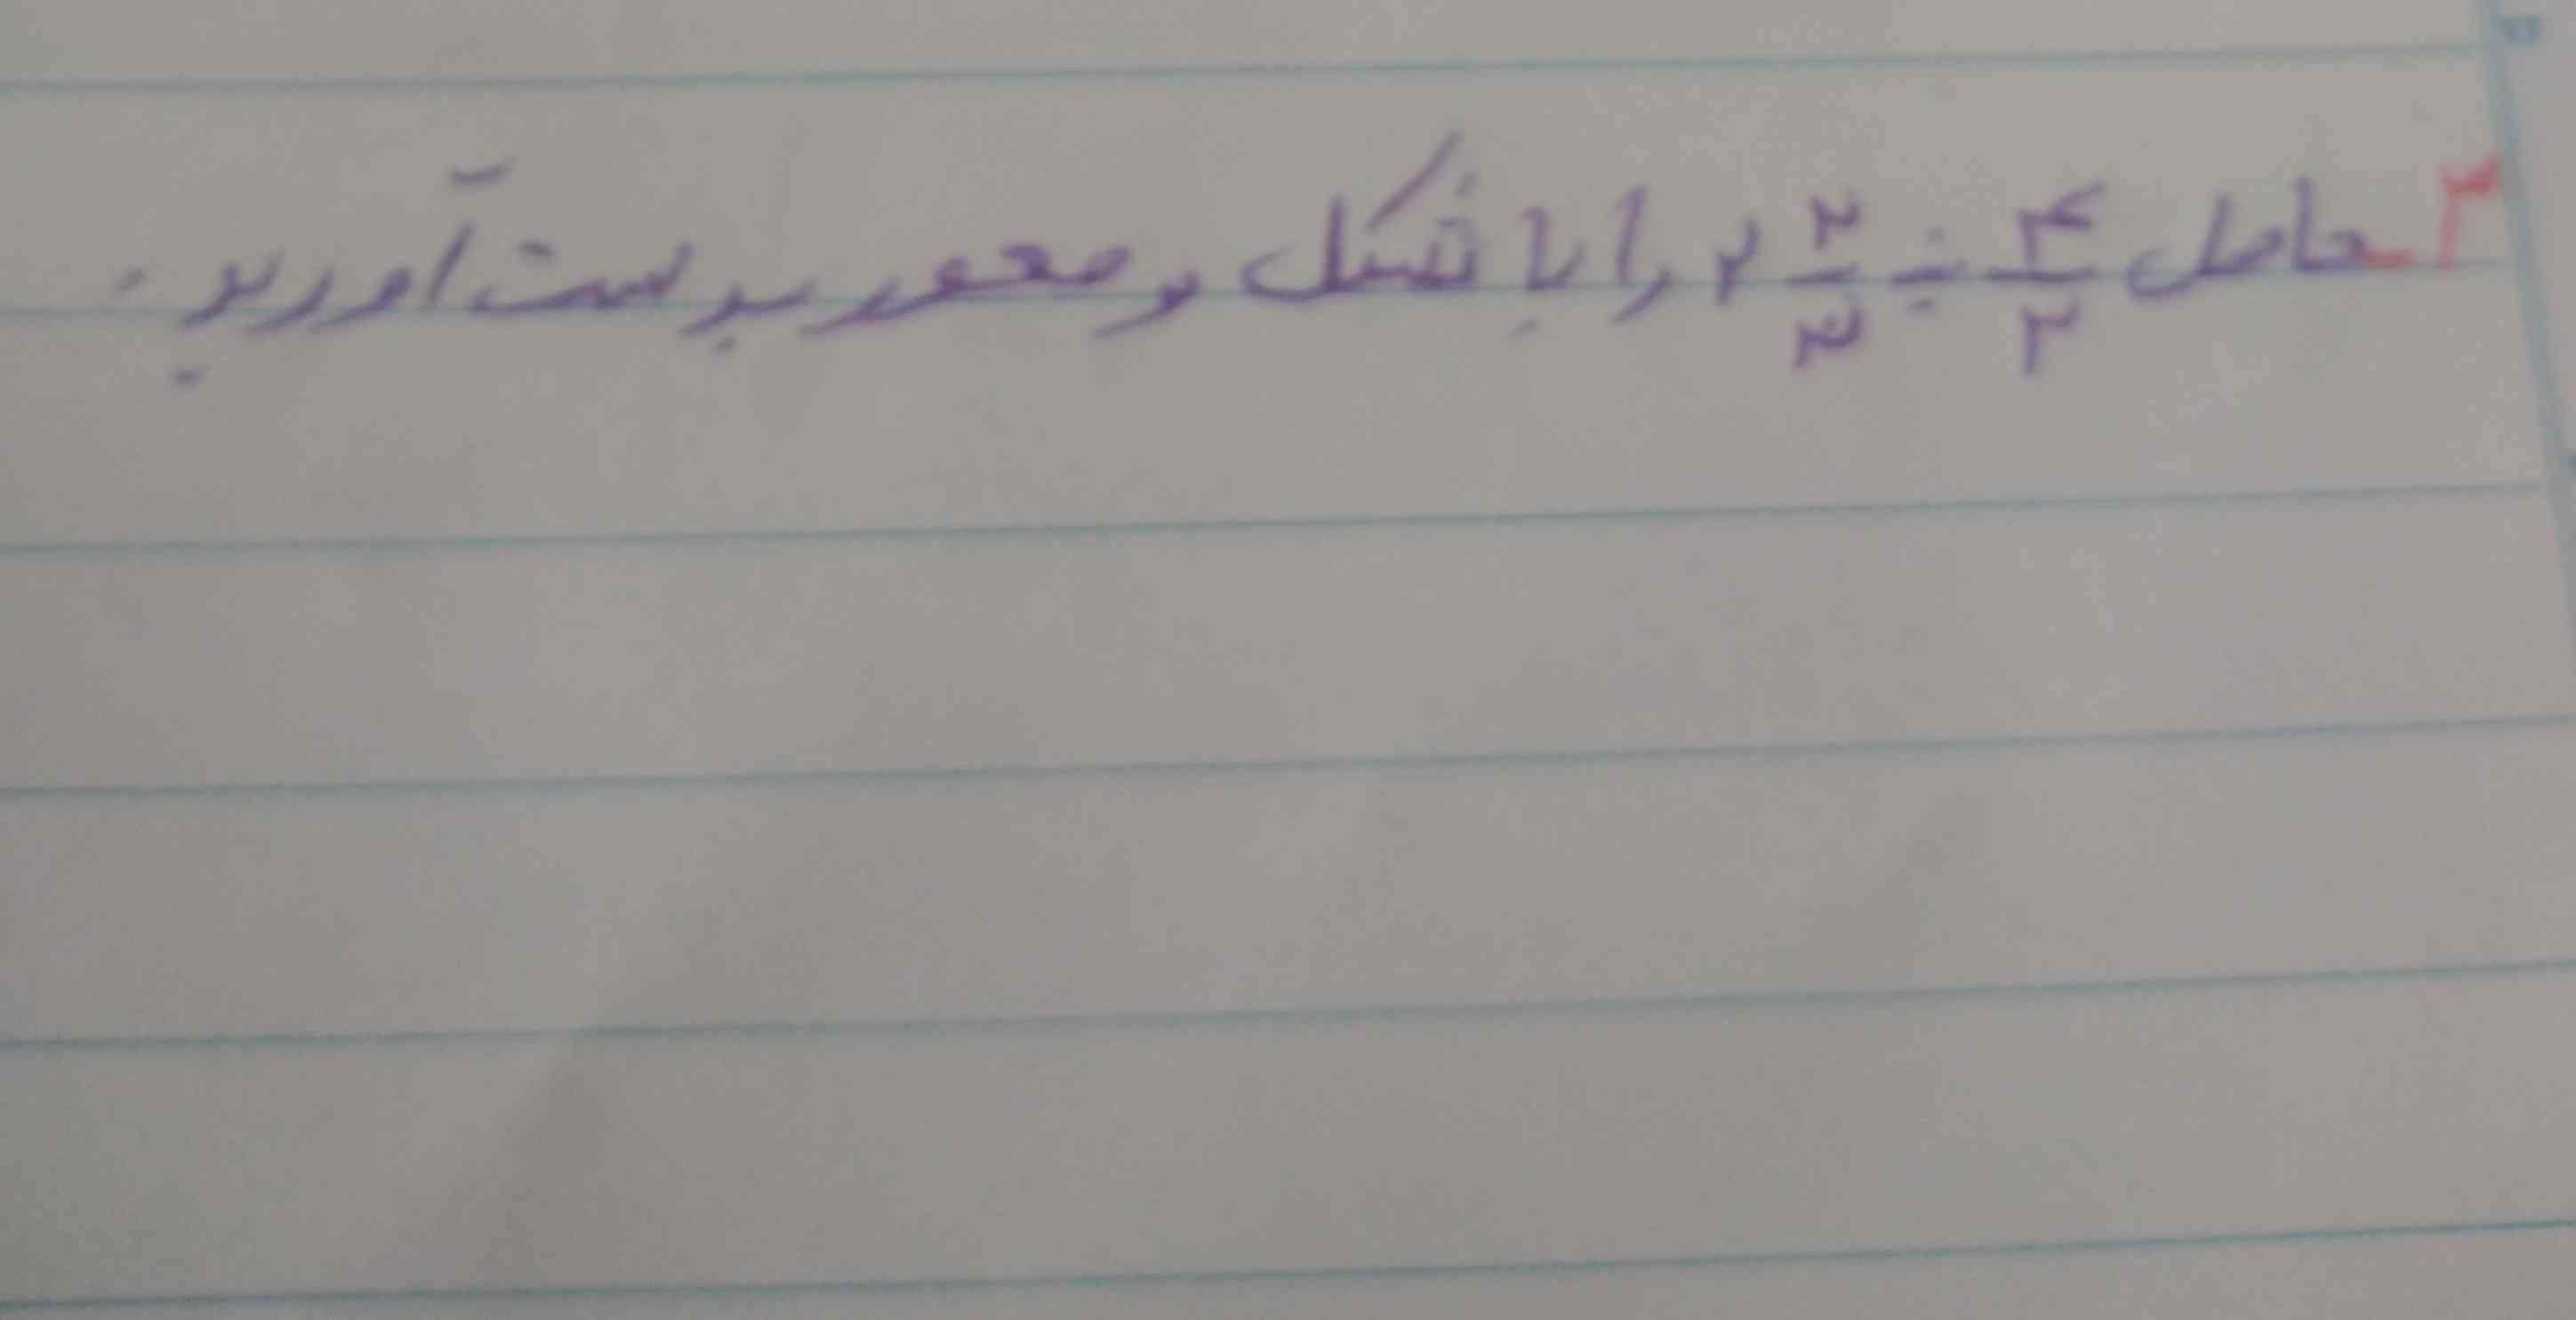 ۳_ حاصل ۲ ۲/۳ ÷ ۴/۳ را با شکل و محور بدست آورید .